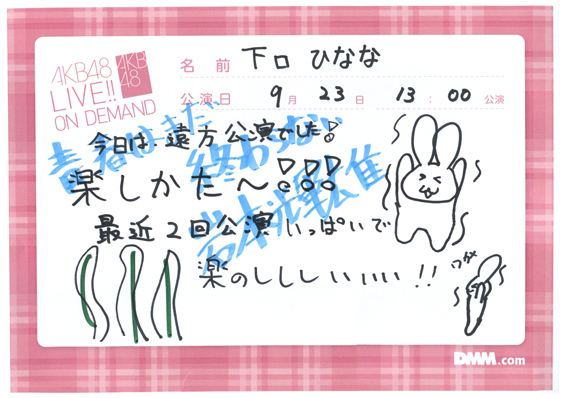 AKB48
LIVE!!
ON DEMAND
AKB
48
名 前 下口 ひなな
公演日 9月 23日 13:00 公演
今日は、遠方公演でした!
青春はまだ、終わらない
楽しかた〜!!!
岩本洸輝&隼
最近2回公演いっぱいで
楽のしししいいいい!!
DMM.com